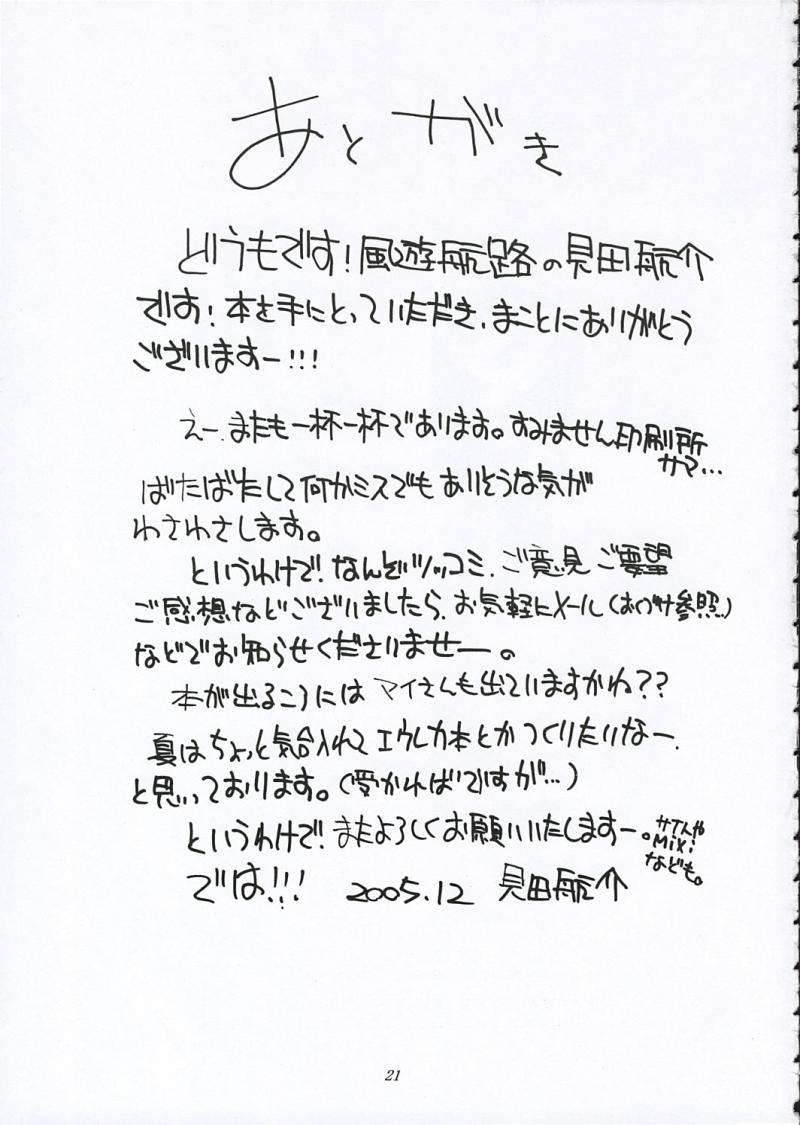 あとがき
どうもです!風遊航路の見田航介
です!本を手にとっていただき、まことにありがとう
ございますー!!!
えー、またも一杯一杯であります。すみません印刷所
サマ…
ばたばたして何かミスでもありそうな気が
わさわさします。
というわけで!なんぞツッコミ、ご意見ご要望
ご感想などございましたら、お気軽にメール(おくづけ参照)
などでお知らせくださいませー。
本が出るころにはマイさんも出ていますかね??
夏はちょっと気合入れてエウレカ本とかつくりたいなー、
と思いっております。(受かればですが…)
というわけで!またよろしくお願いいたしますー。
サイトや
Mixi
なども。
では!!! 2005.12 見田航介
21